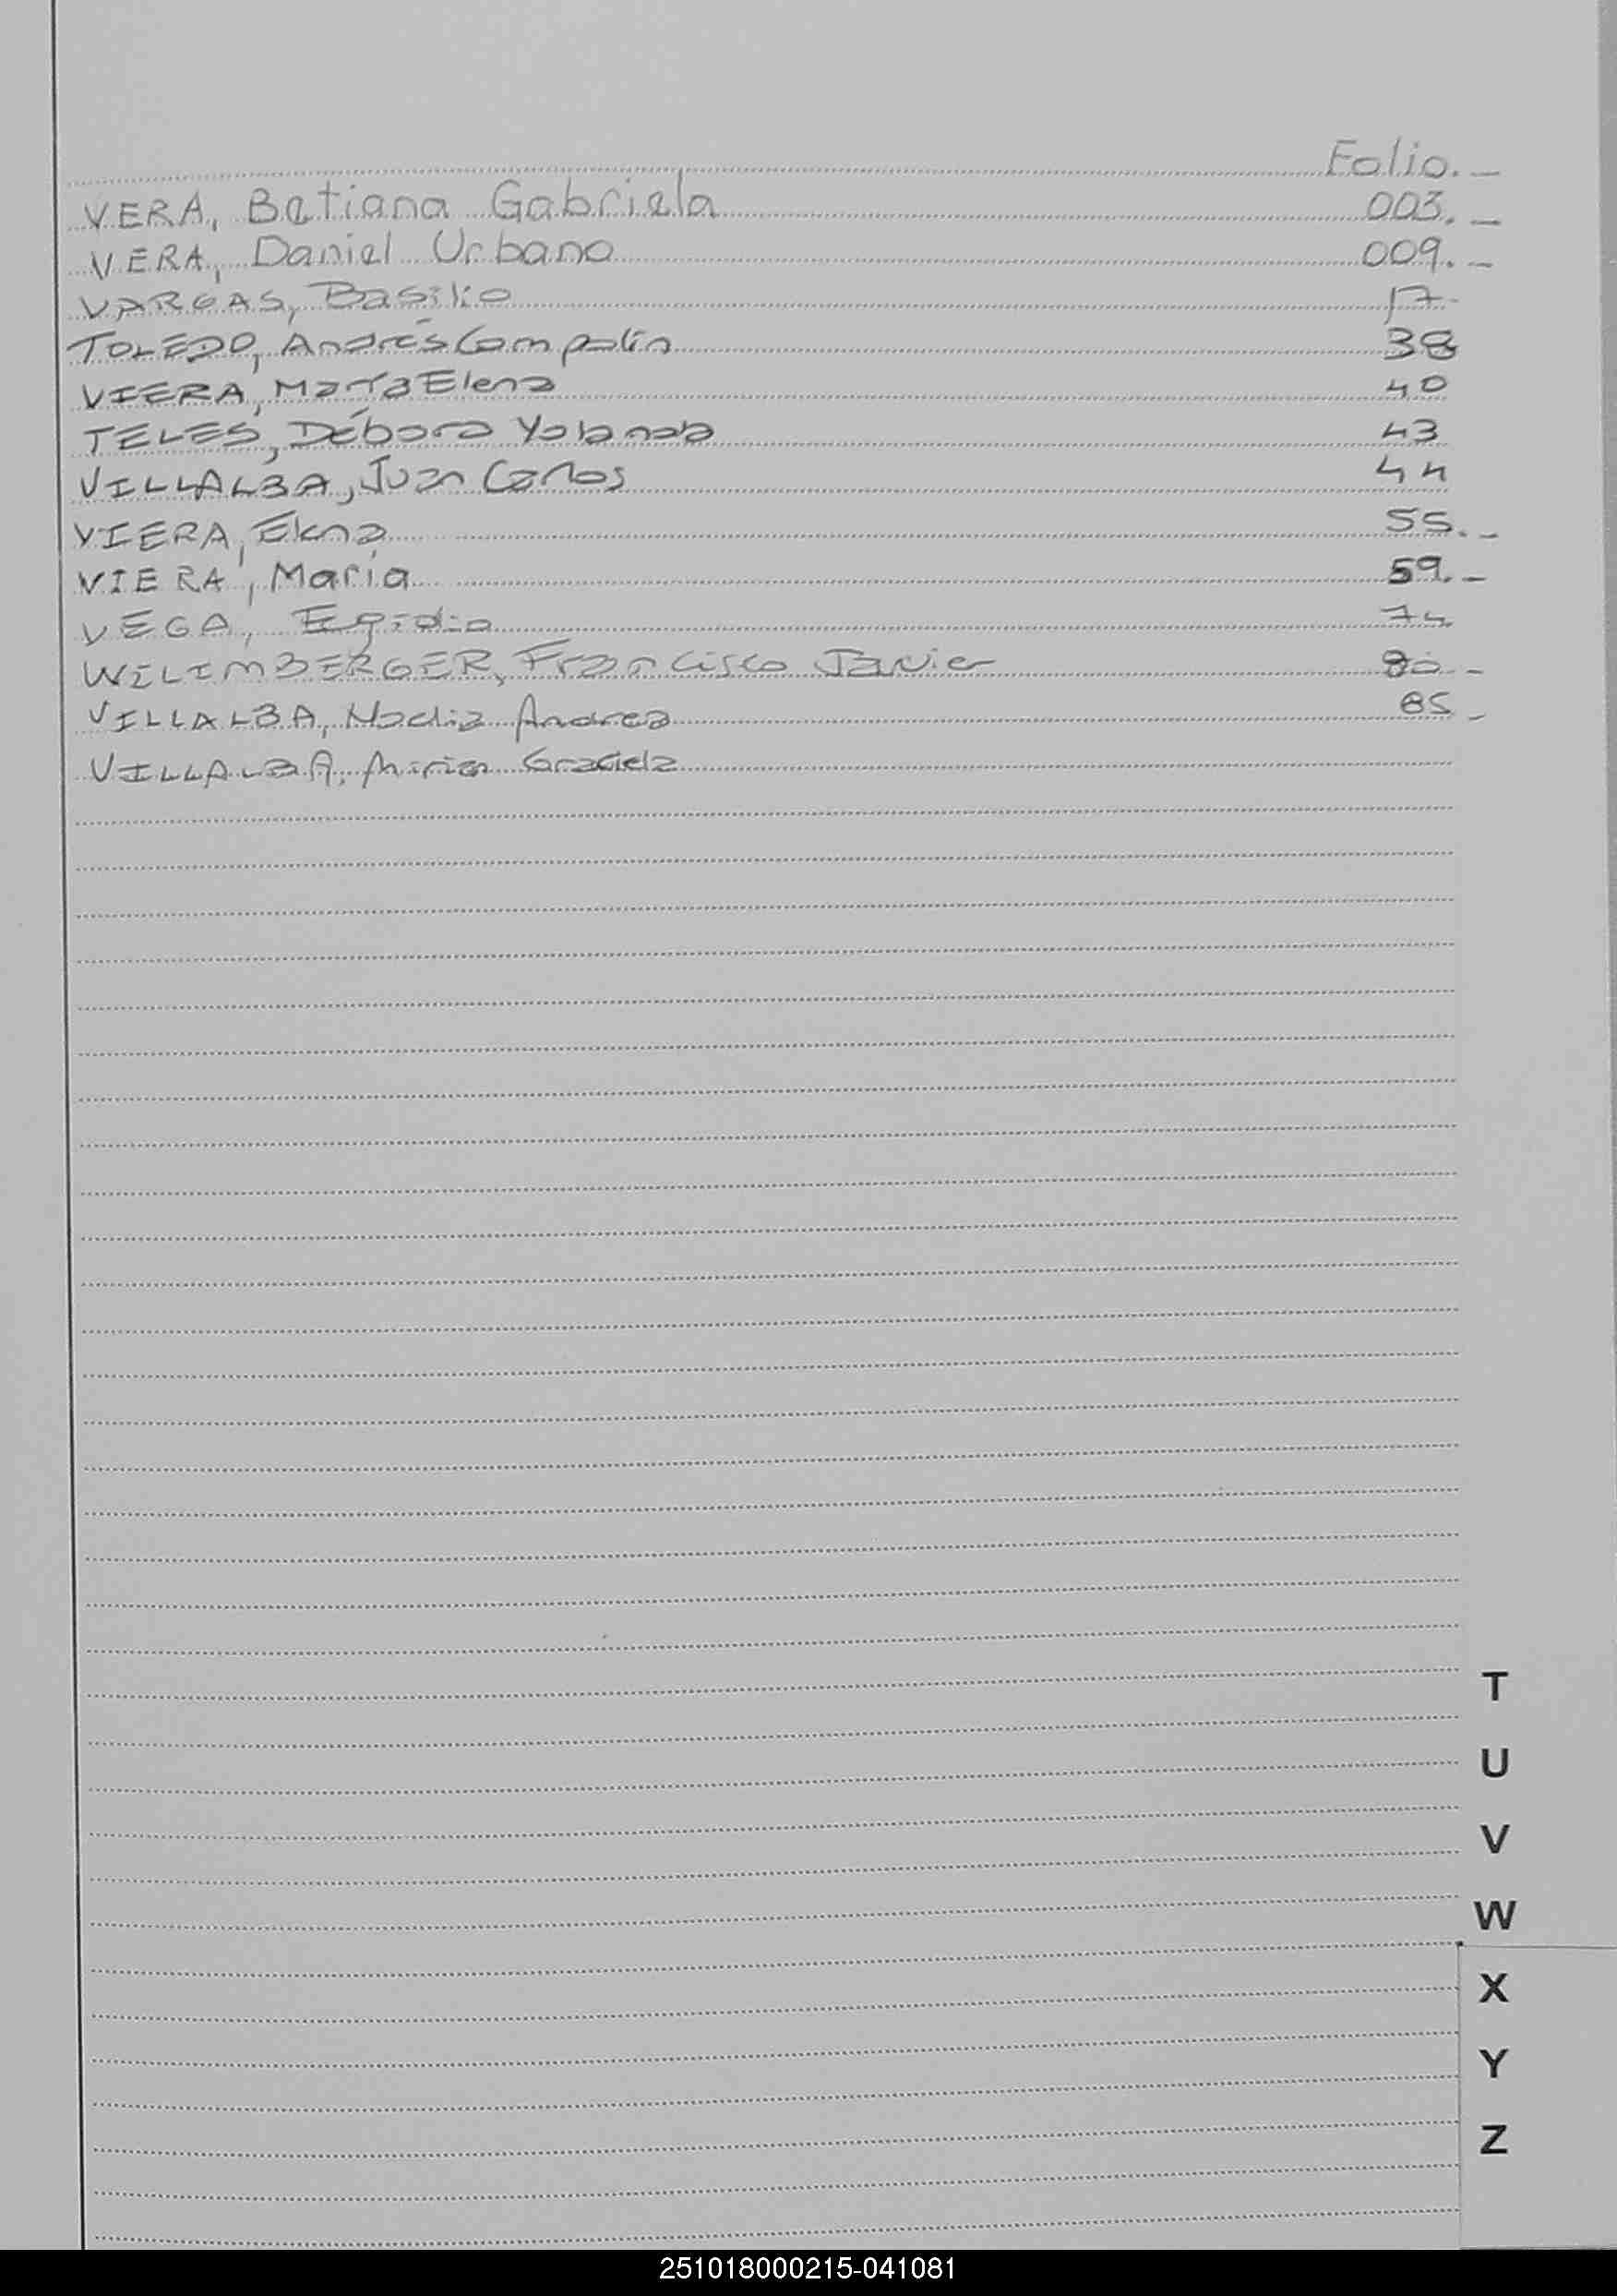 Folio.-
VERA, Betiana Gabriela 003.-
VERA, Daniel Urbano 009.-
VARGAS, Basilio 17-
TOLEDO, Andrés 38
VIERA, María Elena 40
TELES, Débora Yolanda 43
VILLALBA, Juan Carlos 44
VIERA, Elena 55.-
VIERA, María 59.-
VEGA, Egidio 74
WILIMBERGER, Francisco Javier 80-
VILLALBA, Nadia Andrea 85-
VILLALBA, Mirian Graciela
T
U
V
W
X
Y
Z
251018000215-041081